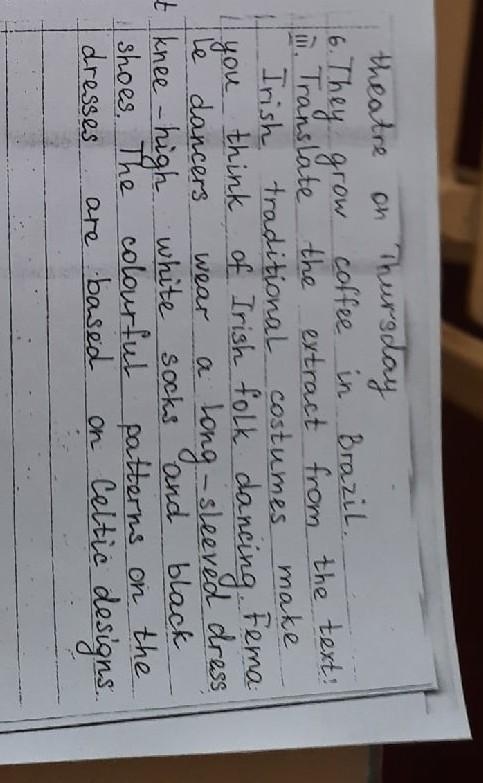 theatre on Thursday
6. They grow coffee in Brazil.
iii. Translate the extract from the text:
Irish traditional costumes make
you think of Irish folk dancing. Fema
le dancers wear a long-sleeved dress,
knee-high white socks and black
shoes. The colourful patterns on the
dresses are based on Celtic designs.